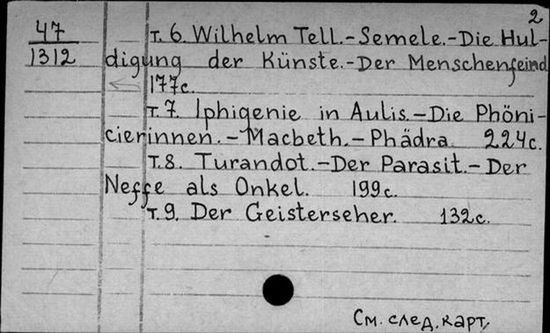 2
47
1312
т. 6. Wilhelm Tell.-Semele.-Die Hul-
digung der Künste.-Der Menschenfeind
177с.
т. 7. Iphigenie in Aulis.-Die Phöni-
cierinnen.-Macbeth.-Phädra. 224с.
т. 8. Turandot.-Der Parasit.-Der
Neffe als Onkel. 199с.
т. 9. Der Geisterseher. 132с.
См. след. карт.